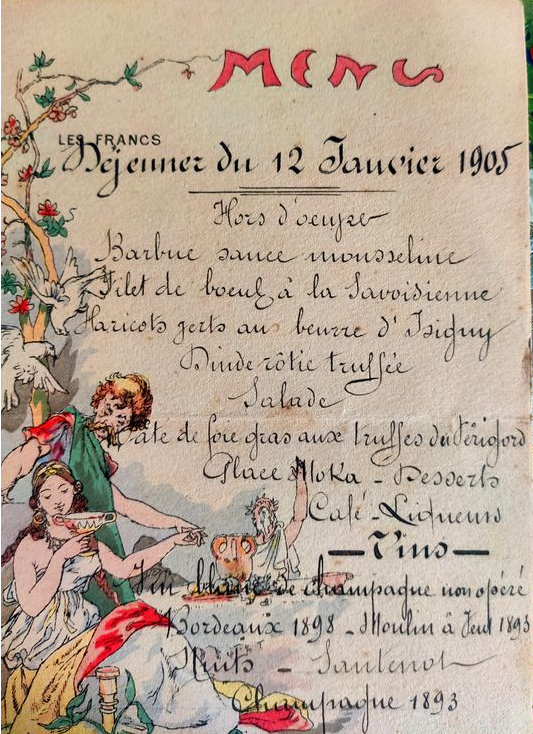 MENU
LES FRANCS
Déjeuner du 12 Janvier 1905
Hors d'oeuvre
Barbue sauce mousseline
Filet de boeuf à la Savoisienne
Haricots verts au beurre d'Isigny
Dinde rôtie truffée
Salade
Pâté de foie gras aux truffes du Périgord
Glace Moka - Desserts
Café - Liqueurs
Vins
Vin blanc de champagne non opéré
Bordeaux 1898 - Moulin à Vent 1893
Nuits - Santenot
Champagne 1893